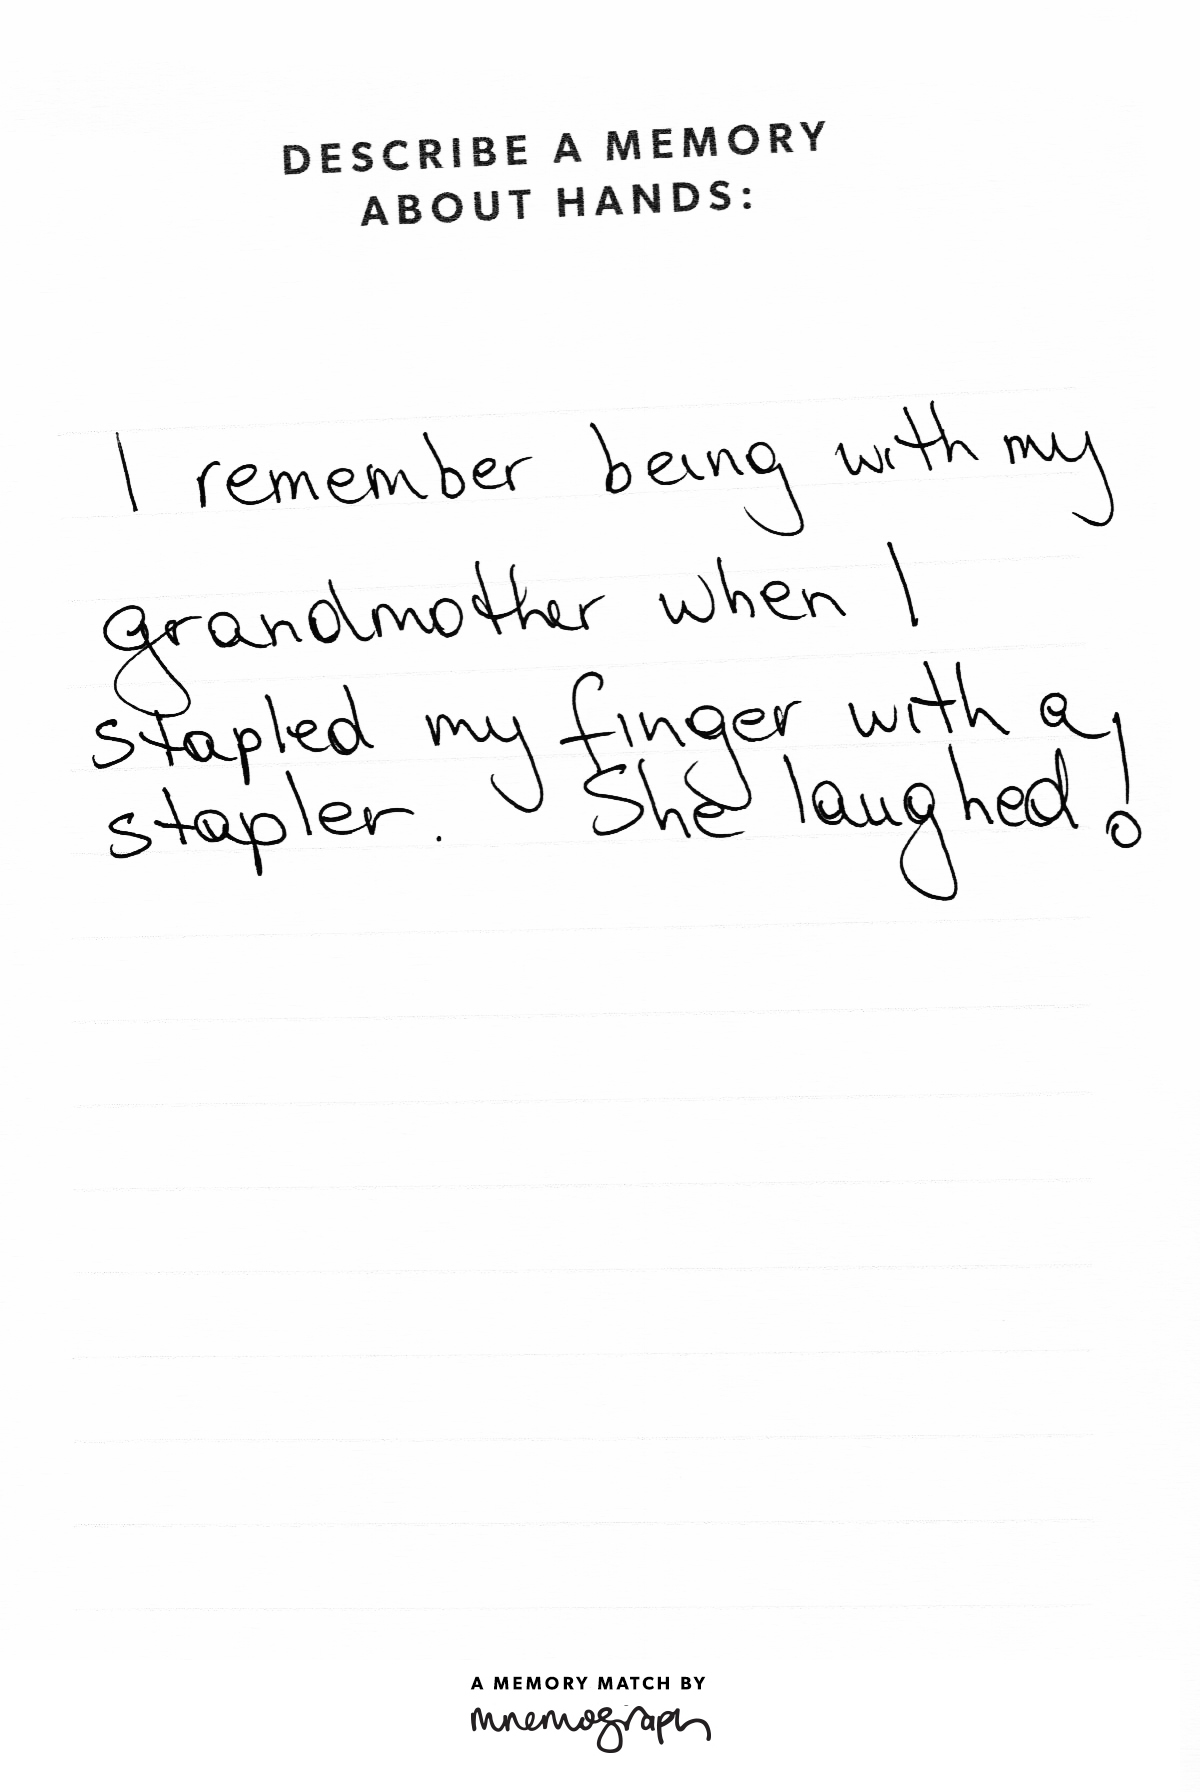 DESCRIBE A MEMORY
ABOUT HANDS:
I remember being with my
grandmother when I
stapled my finger with a
stapler. She laughed!
A MEMORY MATCH BY
mnemograph